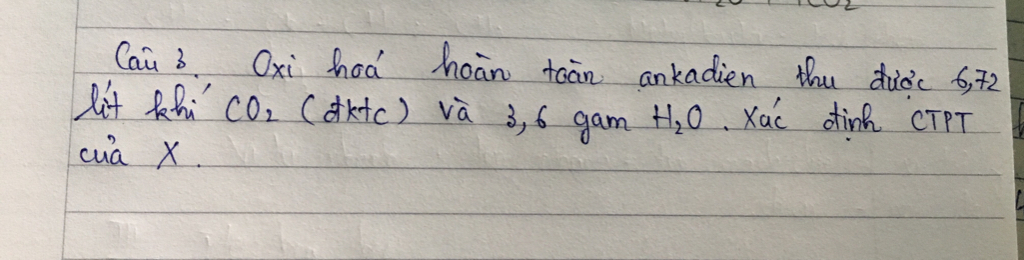 H2O + CO2
Câu 3. Oxi hoá hoàn toàn ankadien thu được 6,72
lít khí CO2 (đktc) và 3,6 gam H2O. Xác định CTPT
của X.